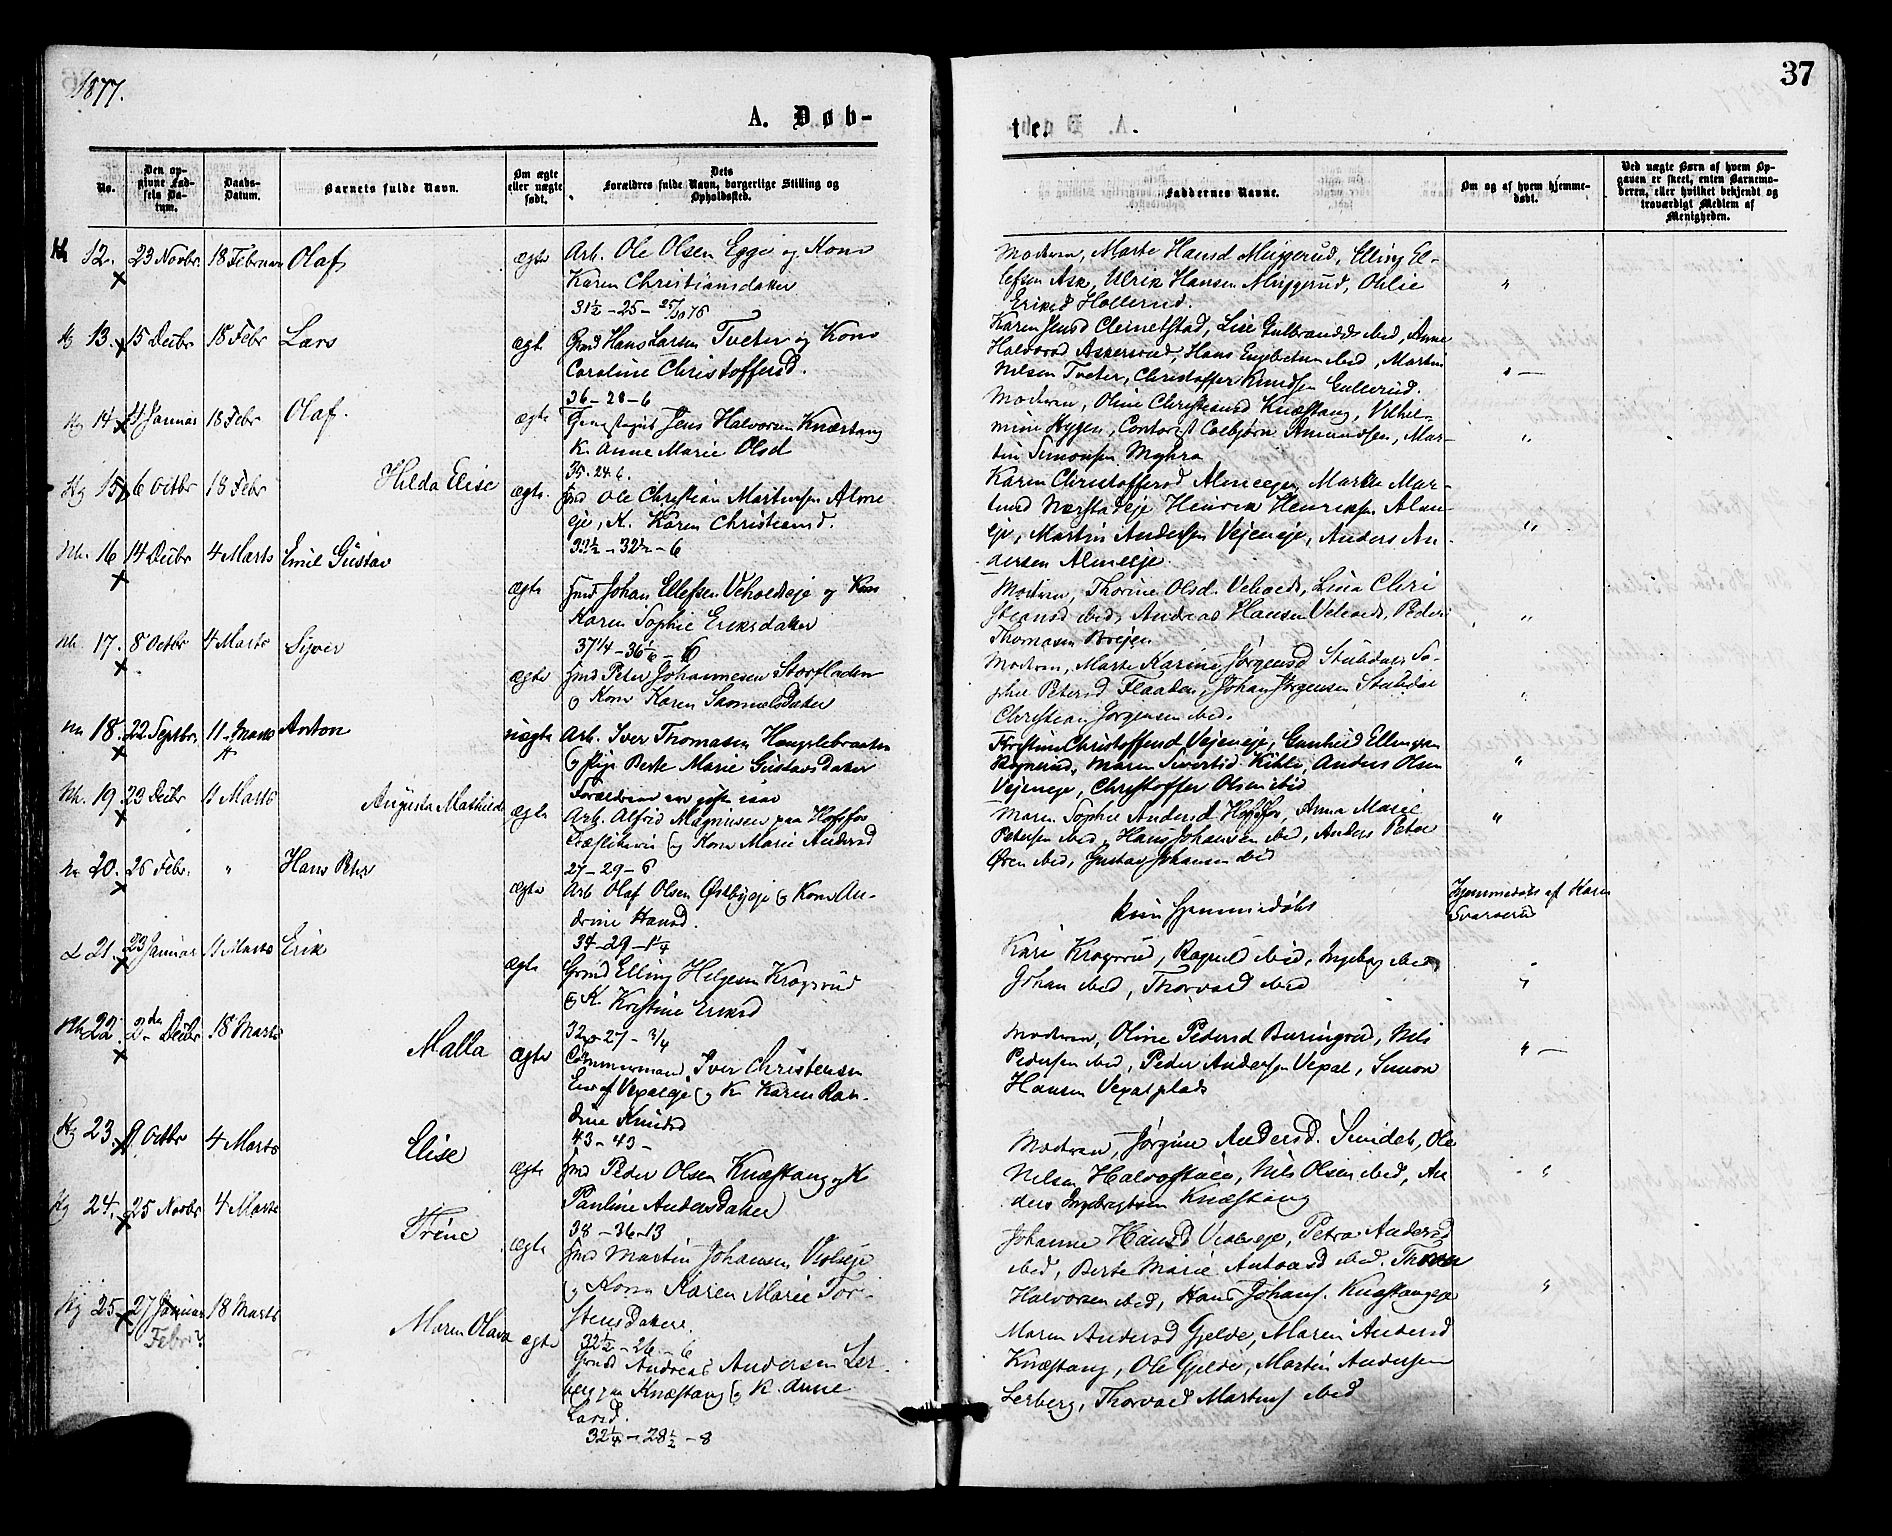 1877.
37
A. Døb-
te.
No.
Den op-
givne Fød-
sels Da-
tum.
Daabs-
Datum.
Barnets fulde Navn.
Om ægte
eller uægte
født.
Dets
Forældres fulde Navn, borgerlige Stilling og
Opholdssted.
Faddernes Navne.
Om og af hvem hjemme-
døbt.
Ved uægte Børn af hvem Op-
gaven er skeet, enten Barnemo-
deren, eller hvilket bekjendt og
troværdigt Medlem af
Menigheden.
12. 23 Novbr. 18 Februar Olaf ægte Arb. Ole Olsen Egge og Kone
Karen Christiansdatter
31½ - 25 - 25/10 76
Moderen, Marte Hansd Muggerud, Elling El-
lefsen Ask, Ulrik Hansen Muggerud, Oulie
Eriksd Hollerud.
Hg 13. 15 Decbr 18 Febr Lars ægte Grmd Hans Larsen Tveter og Kone
Caroline Christoffersd.
36 - 28 - 6
Karen Jensd Clemetstad, Lise Gulbrandsd ibid, Anne
Halvorsd Askersrud, Hans Engebretsen ibid, Martin
Nilsen Tveter, Christoffer Knudsen Gullerud.
Hg 14 4 Januar 18 Febr Olaf. ægte Jens Halvorsen Knæstang
K. Anne Marie Olsd
35. 24 6.
Moderen, Oline Christiansd Knæstang, Vilhel-
mine Hygen, Contorist Colbjørn Amundsen, Mar-
tin Simonsen Myhra
Hg 15 6 Octbr 18 Febr Hilda Elise ægte. Ind Ole Christian Martinsen Alme-
eje, K. Karen Christiansd.
33½ - 32½ - 6
Karen Christoffersd Almeeje, Marthe Mar-
tinsd Nærstadeje Henrik Henriksen Alme-
eje, Martin Andersen Vejeneje, Anders An-
dersen Almeeje.
Nh. 16 14 Decbr 4 Marts Emil Gustav ægte Ind Johan Ellefsen Veholdteje og Kone
Karen Sophie Eriksdatter
37¼ - 36 1/6 - 6
Moderen, Thorine Olsd. Veholdt, Lina Chri-
stiansd ibid, Andreas Hansen Veholdt, Peder
Thomasen Brejen
Nh. 17. 8 Octbr 4 Marts Syver ægte Ind Peter Johannesen Storfladen
og Kone Karen Samuelsdatter
Moderen, Marte Karine Jørgensd Stubdal, So-
phie Petersd Flaaden, Johan Jørgensen Stubdal
Christian Jørgensen ibid.
18. 22 Septbr. 11 Marts Anton uægte Arb. Iver Thomasen Haugslebraaten
og Pige Berte Marie Gustavsdatter
Forældrene ere gifte
Kristine Christoffersd Vejeneje, Gunhild Ellingsen
Rognerud, Maren Sivertsd Kihle, Anders Olsen
Vejeneje, Christoffer Olsen ibid
Nh. 19. 29 Decbr 11 Marts Augusta Mathilde ægte Arb. Alfred Magnusen paa Hofsfos
Træsliberi og Kone Marie Andersd
27 - 29 - 6
Maren Sophie Andersd Hofsfos, Anna Marie
Petersen ibid, Hans Johansen ibid, Anders Peter
Øren ibid, Gustav Johansen ibid
20. 26 Febr. " Hans Peter ægte Arb Olaf Olsen Østbyeje og Kone An-
drine Hansd.
34 - 29 - 1¼
kun hjemmedøbt
Hjemmedøbt af Karen
Svarverud
L 21. 23 Januar 11 Marts Erik ægte Grmd Elling Helgesen Kragsrud
og K. Kristine Eriksd
32 - 27 - ¾
Kari Kragsrud, Ragnild ibid, Ingeborg ibid,
Johan ibid, Thorvald ibid
Nh. 22. 2den Decbr 18 Marts Malla ægte Tømmermand Iver Christensen
Vegaleje og K Karen Ran-
dine Knudsd
43 - 43 -
Moderen, Oline Pedersd Buringrud, Nils
Pedersen ibid, Peder Andersen Vegal, Simon
Hansen Vegalplads
Hg 23. 9 Octbr 4 Marts Elise ægte Ind Peder Olsen Knæstang og K
Pauline Andersdatter
38 - 36 - 13
Moderen, Jørgine Andersd. Smideb, Ole
Nilsen Halvorstøen, Nils Olsen ibid, An-
ders Ingebrigtsen Knæstang
Hg 24. 25 Novbr 4 Marts Trine ægte Ind Martin Johansen Violseje
og Kone Karen Marie Tor-
stensdatter.
32½ - 26 - 6
Johanne Hansd Violseje, Petra Andersd
ibid, Berte Marie Antonsd ibid. Thorer
Halvorsen ibid, Hans Johans. Knæstangeje
Hg 25. 27 Januar 18 Marts Maren Olava ægte Grmd Andreas Andersen Ler-
berg paa Knæstang og K. Anne
Larsd.
32¼ - 28½ - 8
Febr?
Maren Andersd Gjelde, Maren Andersd
Knæstang, Ole Gjelde, Martin Andersen
Lerberg, Thorvald Martins ibid